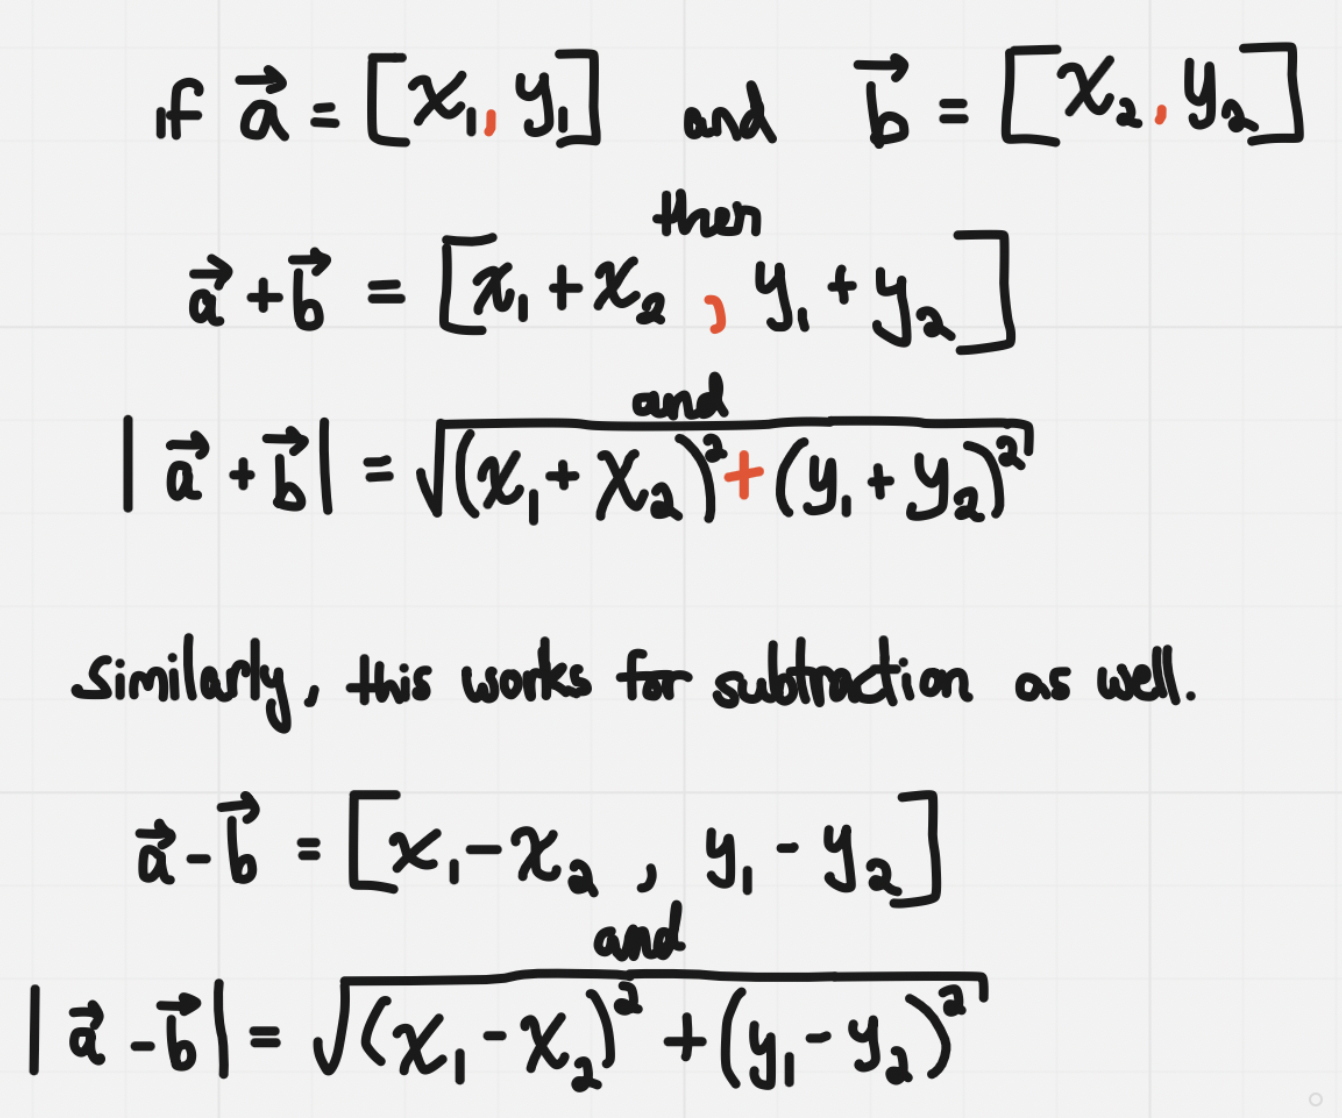 if a⃗ = [x₁, y₁] and b⃗ = [x₂, y₂]
then
a⃗ + b⃗ = [x₁ + x₂ , y₁ + y₂]
and
|a⃗ + b⃗| = √((x₁ + x₂)² + (y₁ + y₂)²)
similarly, this works for subtraction as well.
a⃗ - b⃗ = [x₁ - x₂ , y₁ - y₂]
and
|a⃗ - b⃗| = √((x₁ - x₂)² + (y₁ - y₂)²)